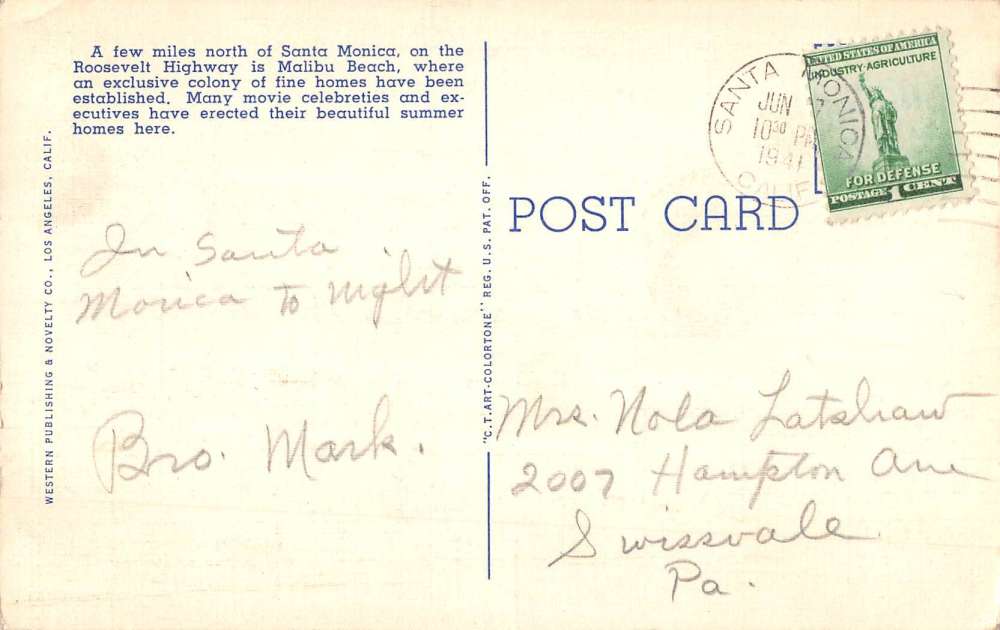 A few miles north of Santa Monica, on the
Roosevelt Highway is Malibu Beach, where
an exclusive colony of fine homes have been
established. Many movie celebreties and ex-
ecutives have erected their beautiful summer
homes here.
WESTERN PUBLISHING & NOVELTY CO., LOS ANGELES, CALIF.
In Santa
Monica to night
Bro. Mark.
"C.T. ART-COLORTONE" REG. U.S. PAT. OFF.
SANTA MONICA
JUN
10 30 PM
1941
CALIF
UNITED STATES OF AMERICA
INDUSTRY-AGRICULTURE
FOR DEFENSE
POSTAGE 1 CENT
POST CARD
Mrs. Nola Latshaw
2007 Hampton Ave
Swissvale
Pa.